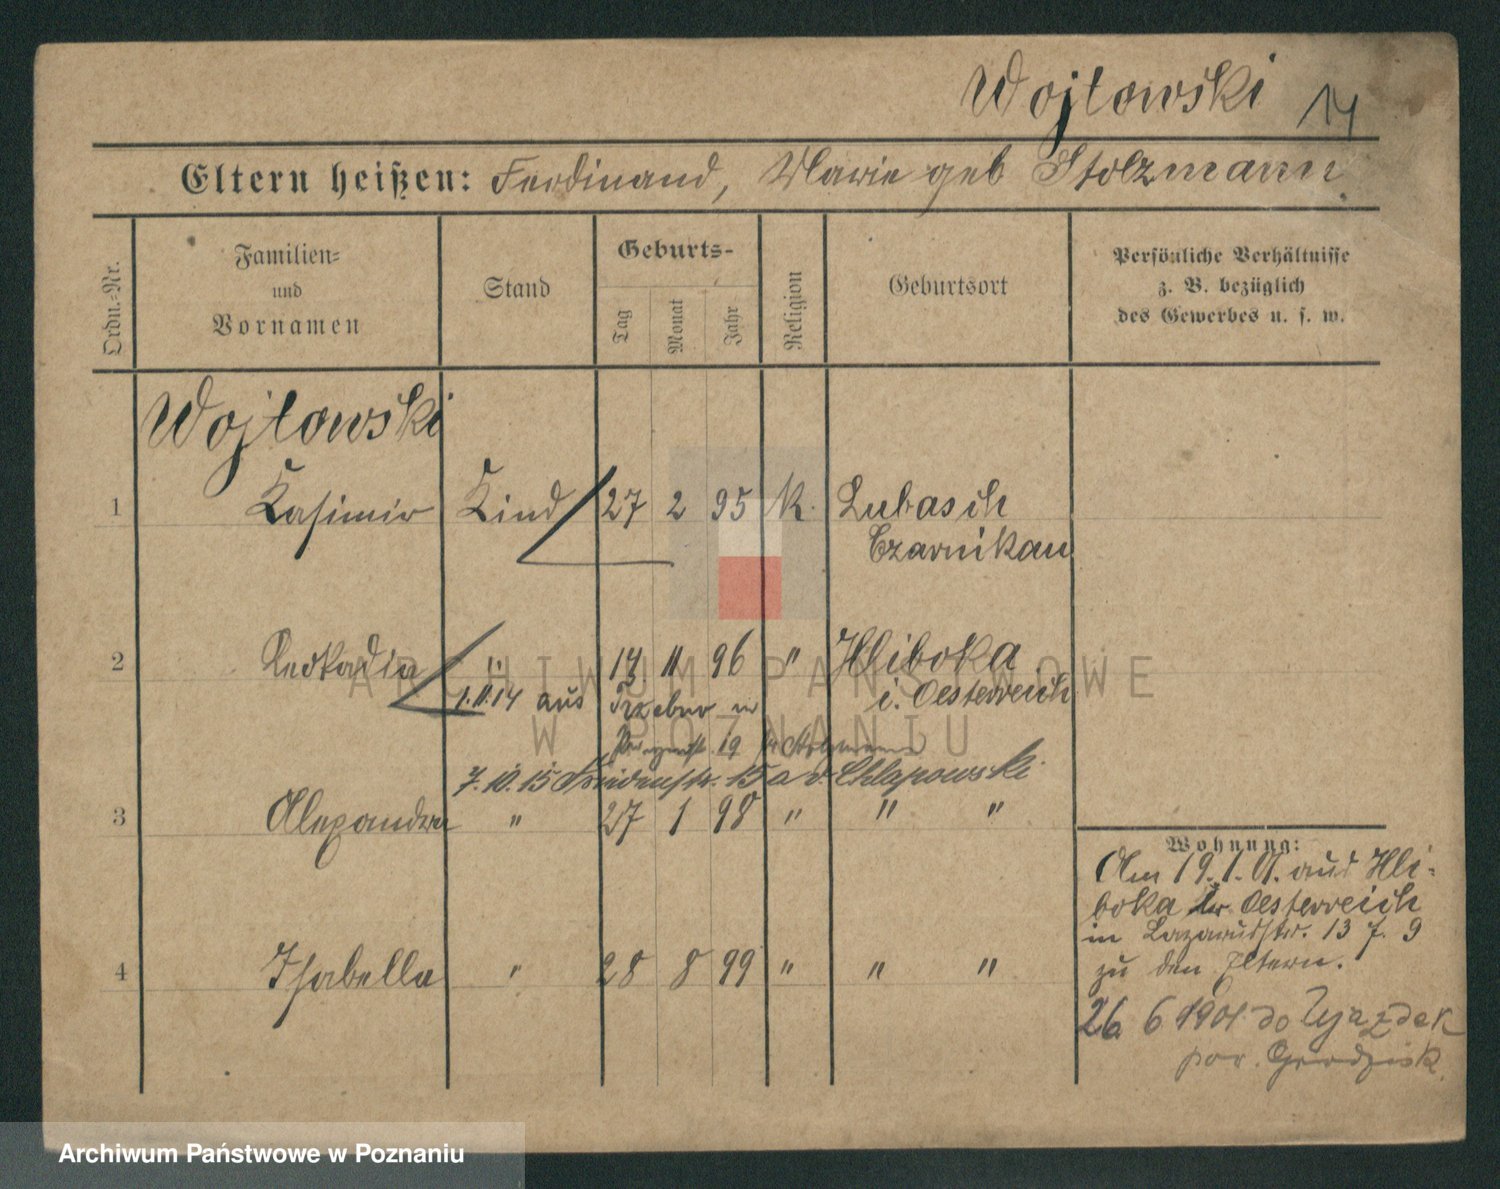 Wojtowski 14
Eltern heißen: Ferdinand, Marie geb Stolzmann
Ordn.-Nr.
Familien-
und
Vornamen
Stand
Geburts-
Tag Monat Jahr
Religion
Geburtsort
Persönliche Verhältnisse
z. B. bezüglich
des Gewerbes u. s. w.
Wojtowski
1 Kasimir Kind 27 2 95 K. Lubasch
Czarnikau
2 Leokadia " 14 11 96 " Hliboka
i. Oesterreich
1.11.14 aus
19
7.10.15 Friedenstr. 15a v. Chlapowski
3 Alexandra " 27 1 98 " " "
4 Isabella " 28 8 99 " " "
Wohnung:
Am 19.1.01. aus Hli-
boka Oesterreich
in Lazarusstr. 13 b. 9
zu den Eltern.
26 6 1901 do
pow. Grodzisk
ARCHIWUM PAŃSTWOWE
W POZNANIU
Archiwum Państwowe w Poznaniu